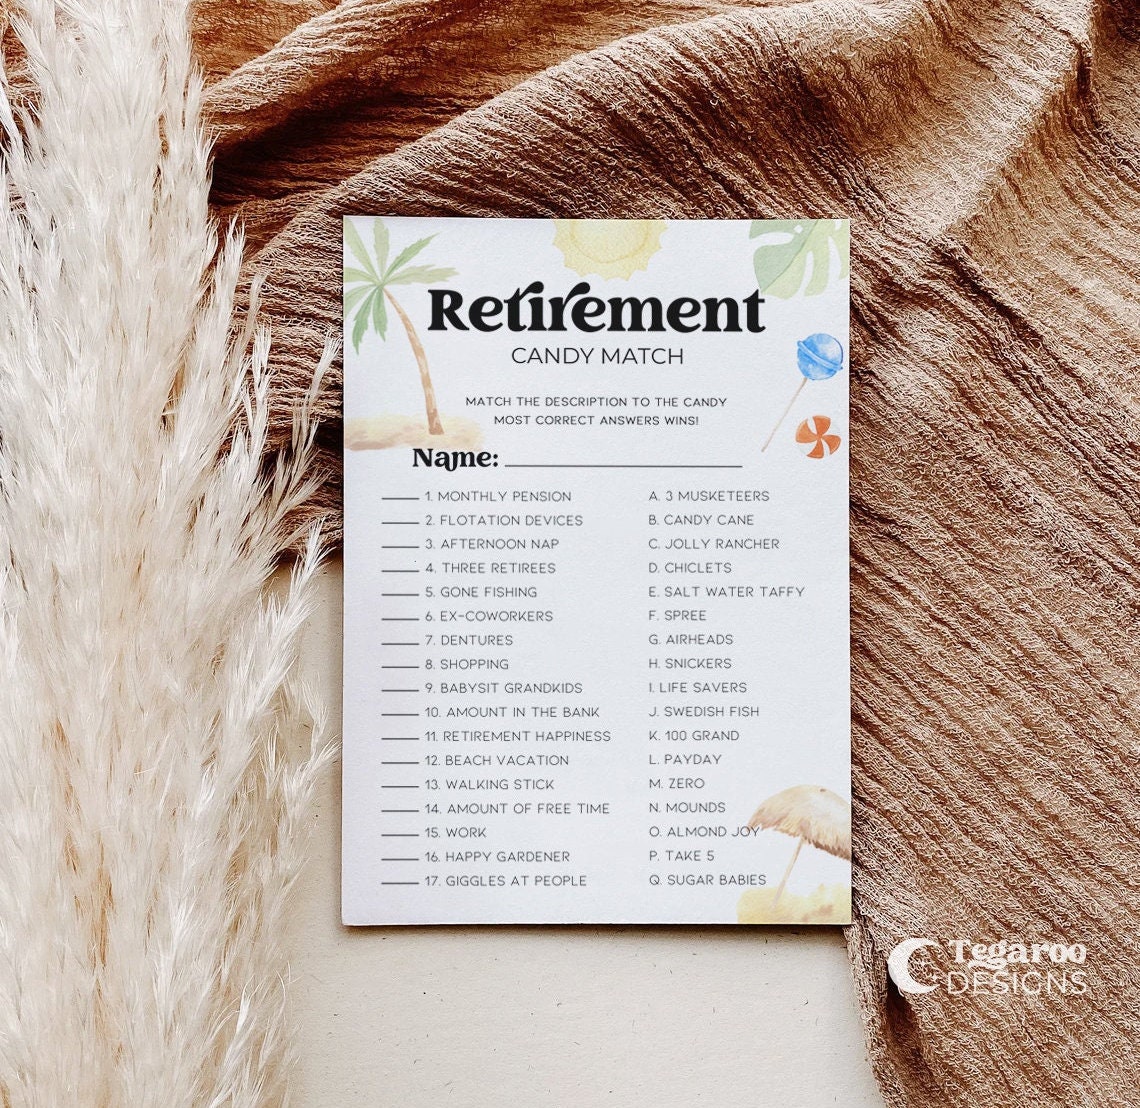 Retirement
CANDY MATCH
MATCH THE DESCRIPTION TO THE CANDY
MOST CORRECT ANSWERS WINS!
Name:
1. MONTHLY PENSION
2. FLOTATION DEVICES
3. AFTERNOON NAP
4. THREE RETIREES
5. GONE FISHING
6. EX-COWORKERS
7. DENTURES
8. SHOPPING
9. BABYSIT GRANDKIDS
10. AMOUNT IN THE BANK
11. RETIREMENT HAPPINESS
12. BEACH VACATION
13. WALKING STICK
14. AMOUNT OF FREE TIME
15. WORK
16. HAPPY GARDENER
17. GIGGLES AT PEOPLE
A. 3 MUSKETEERS
B. CANDY CANE
C. JOLLY RANCHER
D. CHICLETS
E. SALT WATER TAFFY
F. SPREE
G. AIRHEADS
H. SNICKERS
I. LIFE SAVERS
J. SWEDISH FISH
K. 100 GRAND
L. PAYDAY
M. ZERO
N. MOUNDS
O. ALMOND JOY
P. TAKE 5
Q. SUGAR BABIES
Tegaroo
DESIGNS